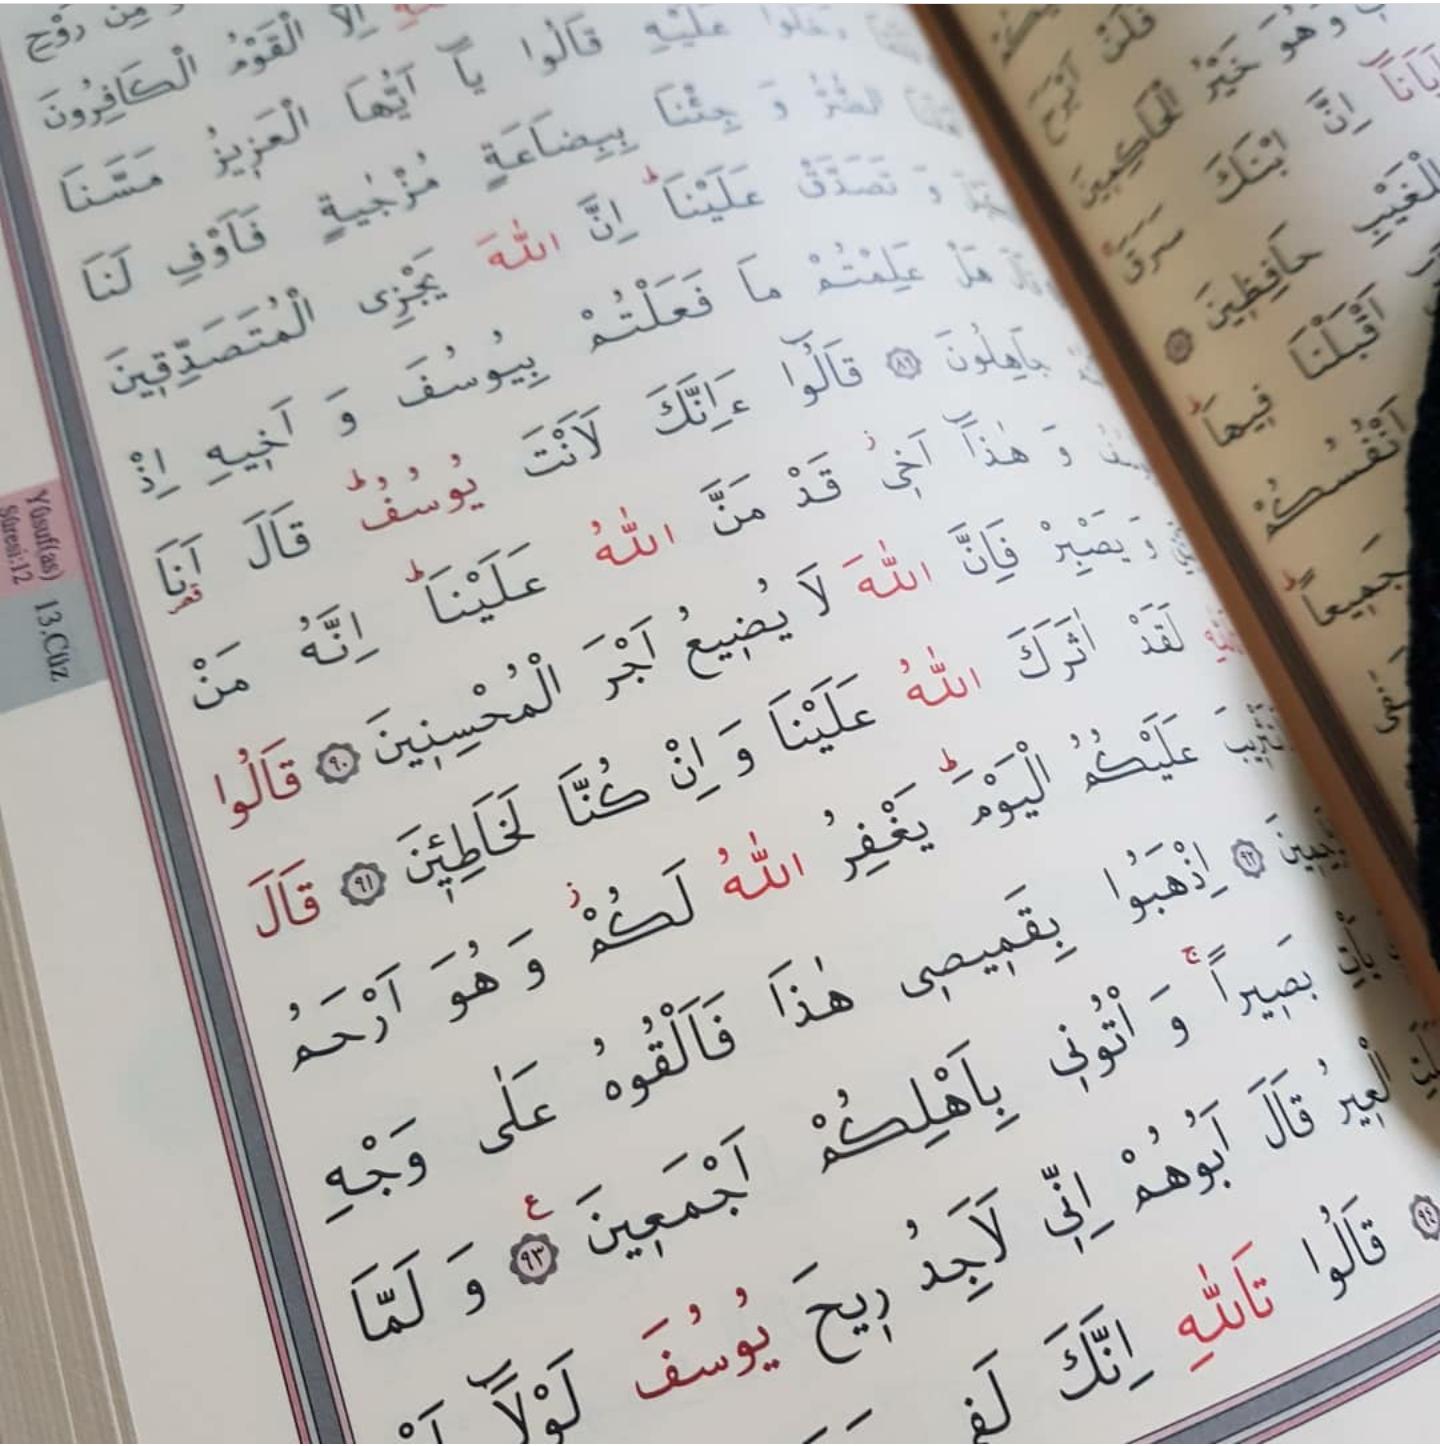 مِنْ رَوْحِ
اِلَّا الْقَوْمُ الْكَافِرُونَ
دَخَلُوا عَلَيْهِ قَالُوا يَٓا اَيُّهَا الْعَزِيزُ مَسَّنَا
الضُّرُّ وَ جِئْنَا بِبِضَاعَةٍ مُزْجٰيةٍ فَاَوْفِ لَنَا
وَ تَصَدَّقْ عَلَيْنَاۜ اِنَّ اللّٰهَ يَجْزِى الْمُتَصَدِّقِينَ
قَالَ هَلْ عَلِمْتُمْ مَا فَعَلْتُمْ بِيُوسُفَ وَ اَخِيهِ اِذْ
جَاهِلُونَ ﴿٨٩﴾ قَالُٓوا ءَاِنَّكَ لَاَنْتَ يُوسُفُۜ قَالَ اَنَا۬
وَ هٰذَٓا اَخِىۘ قَدْ مَنَّ اللّٰهُ عَلَيْنَاۜ اِنَّهُ مَنْ
وَ يَصْبِرْ فَاِنَّ اللّٰهَ لَا يُضِيعُ اَجْرَ الْمُحْسِنِينَ ﴿٩٠﴾ قَالُوا
لَقَدْ اٰثَرَكَ اللّٰهُ عَلَيْنَا وَ اِنْ كُنَّا لَخَاطِئِينَ ﴿٩١﴾ قَالَ
عَلَيْكُمُ الْيَوْمَۜ يَغْفِرُ اللّٰهُ لَكُمْۘ وَ هُوَ اَرْحَمُ
﴿٩٢﴾ اِذْهَبُوا بِقَمِيصِى هٰذَا فَاَلْقُوهُ عَلٰى وَجْهِ
يَأْتِ بَصِيراًۚ وَ اْتُونِى بِاَهْلِكُمْ اَجْمَعِينَ ﴿٩٣﴾ ع وَ لَمَّا
الْعِيرُ قَالَ اَبُوهُمْ اِنِّى لَاَجِدُ رِيحَ يُوسُفَ لَوْلَٓا اَنْ
﴿٩٤﴾ قَالُوا تَاللّٰهِ اِنَّكَ لَفِى
Yûsuf(as)
Sûresi:12
13.Cüz
فَلَنْ اَبْرَحَ
وَ هُوَ خَيْرُ الْحَاكِمِينَ
اَبَانَٓا اِنَّ ابْنَكَ سَرَقَ
لِلْغَيْبِ حَافِظِينَ ﴿٨١﴾
اَقْبَلْنَا فِيهَاۜ
اَنْفُسُكُمْ
جَمِيعاًۜ